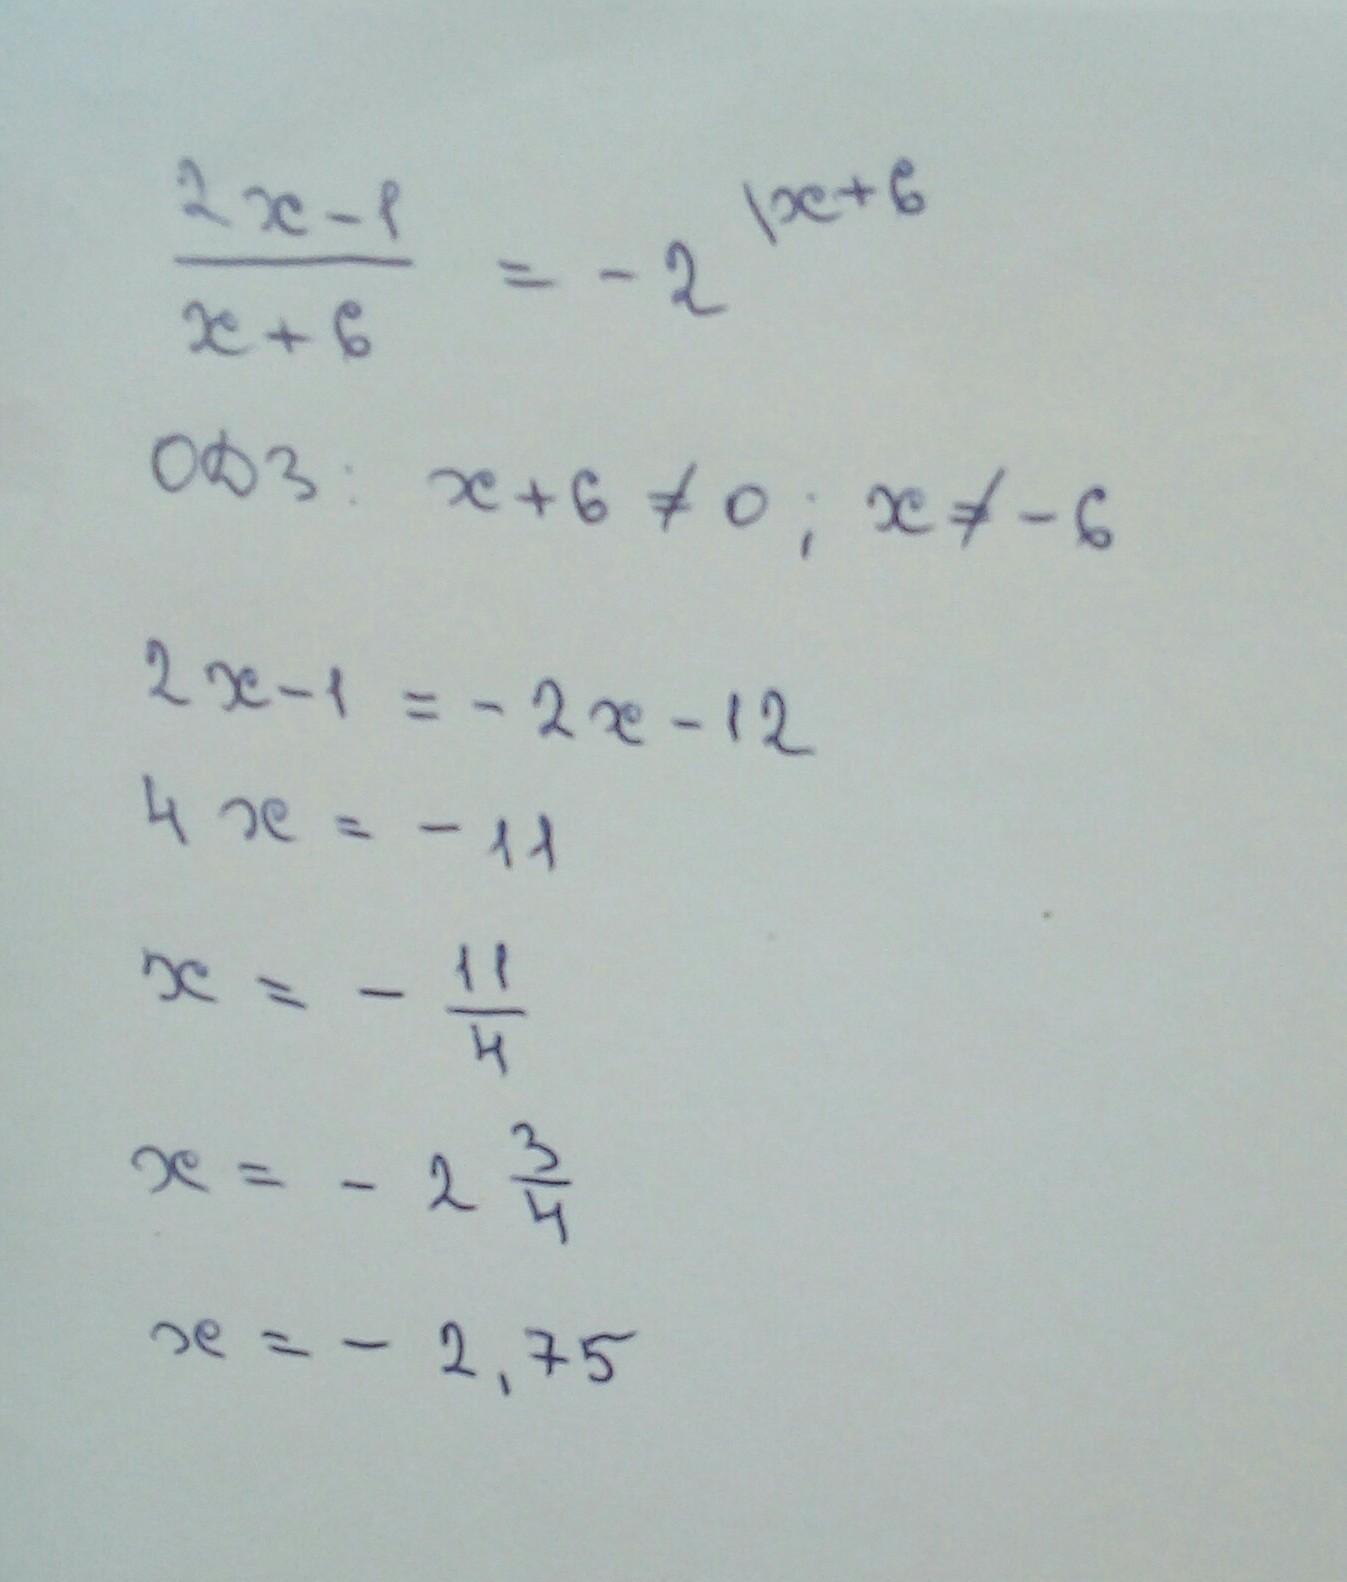 (2x-1)/(x+6) = -2 \x+6
ОДЗ: x+6 ≠ 0; x ≠ -6
2x-1 = -2x-12
4x = -11
x = - 11/4
x = - 2 3/4
x = - 2,75